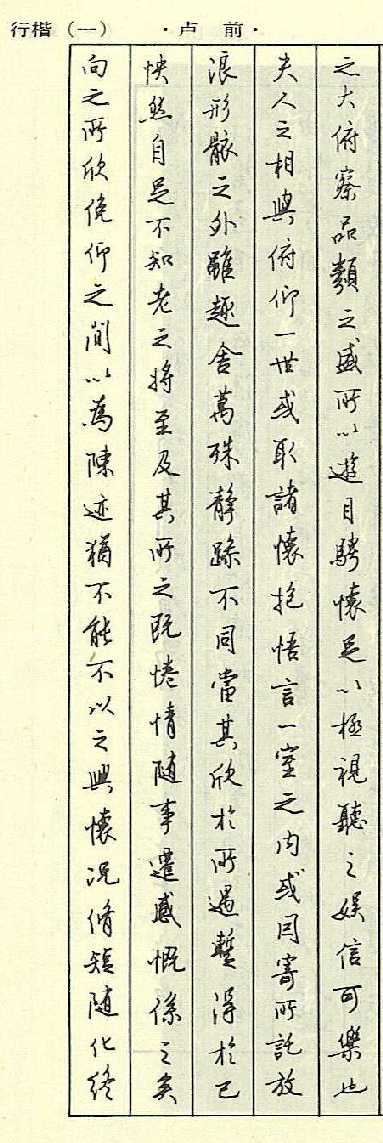 行楷（一）
·卢 前·
之大俯察品類之盛所以遊目騁懷足以極視聽之娱信可樂也
夫人之相與俯仰一世或取諸懷抱悟言一室之内或因寄所託放
浪形骸之外雖趣舍萬殊静躁不同當其欣於所遇暫得於己
怏然自足不知老之將至及其所之既惓情隨事遷感慨係之矣
向之所欣俛仰之間以為陳迹猶不能不以之興懷况脩短隨化終